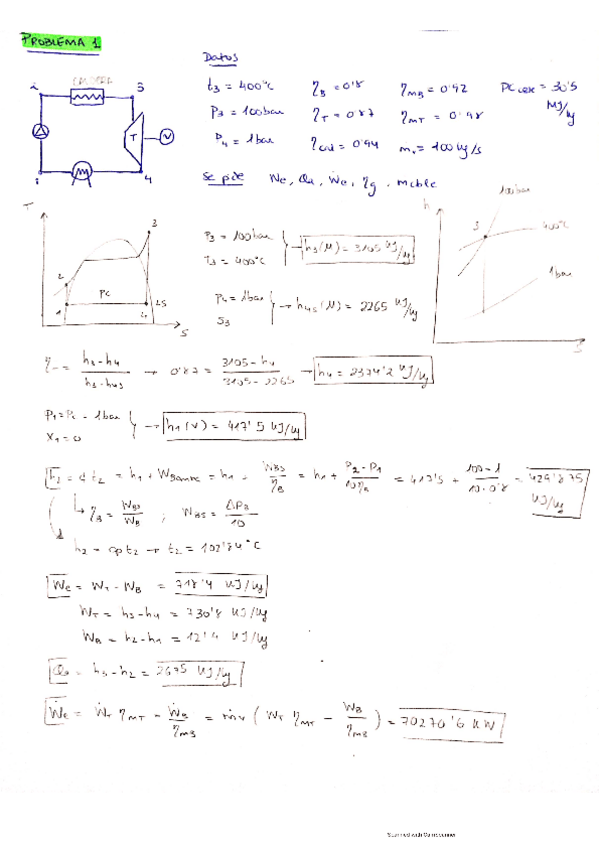 PROBLEMA 1
Datos
t3 = 400°C ηB = 0'8 ηmB = 0'92 PC = 30'5 MJ/kg
P3 = 100 bar ηT = 0'87 ηmT = 0'98
P4 = 1 bar ηcal = 0'94 mv = 100 kg/s
Se pide We, Qa, Ẇe, ηg, mcble
2 CALDERA 3
T
1 4
T 3 2 PC 1 4 4S S
h 100 bar 3 400°C 1 bar S
P3 = 100 bar
T3 = 400°C → h3 (M) = 3105 kJ/kg
P4 = 1 bar
S3 → h4s (M) = 2265 kJ/kg
ηT = (h3 - h4)/(h3 - h4s) → 0'87 = (3105 - h4)/(3105 - 2265) → h4 = 2374'2 kJ/kg
P1 = P4 = 1 bar
X1 = 0 → h1 (V) = 417'5 kJ/kg
= h1 + Wbomba = h1 + WBS/ηB = h1 + (P2 - P1)/(10 ηB) = 417'5 + (100 - 1)/(10 · 0'8) = 429'875 kJ/kg
ηB = WBS/WB ; WBS = ΔPB/10
h2 = cp t2 → t2 = 102'84°C
We = WT - WB = 718'4 kJ/kg
WT = h3 - h4 = 730'8 kJ/kg
WB = h2 - h1 = 12'4 kJ/kg
Qa = h3 - h2 = 2675 kJ/kg
Ẇe = ẆT ηmT - ẆB/ηmB = ṁv (WT ηmT - WB/ηmB) = 70270'6 kW
Scanned with CamScanner